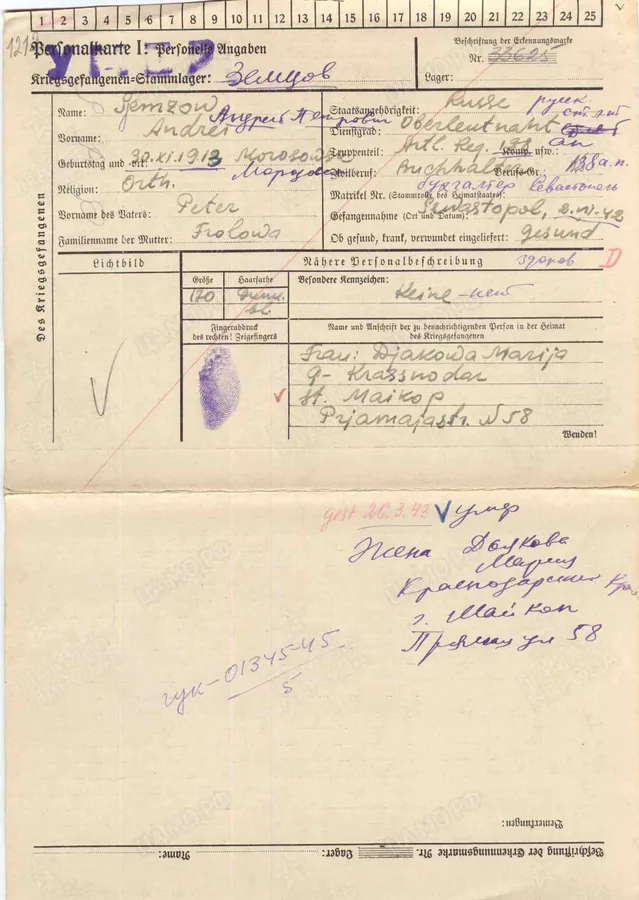 1 2 3 4 5 6 7 8 9 10 11 12 13 14 15 16 17 18 19 20 21 22 23 24 25
Personalkarte I: Personelle Angaben
УМЕР
Beschriftung der Erkennungsmarke
Nr. 33625
Kriegsgefangenen=Stammlager: Земцов
Lager:
Des Kriegsgefangenen
Name: Semzow
Андрей Петрович
Vorname: Andrei
Geburtstag und =ort: 30.XI.1913 Morosowsk
Religion: Orth.
Vorname des Vaters: Peter
Familienname der Mutter: Frolowa
Staatsangehörigkeit: Russe русск
Dienstgrad: Oberleutnant ст. лит
Truppenteil: Artl. Reg. 138 Komp. usw.: ап
138 а.п.
Zivilberuf: Buchhalter Berufs=Gr.:
бухгалтер Севастополь
Matrikel Nr. (Stammrolle des Heimatstaates)
Gefangennahme (Ort und Datum): Sewastopol,
Ob gesund, krank, verwundet eingeliefert: gesund
Lichtbild
Nähere Personalbeschreibung здоров D
Größe
Haarfarbe
Besondere Kennzeichen:
170
Keine - нет
Fingerabdruck
des rechten! Zeigefingers
Name und Anschrift der zu benachrichtigenden Person in der Heimat
des Kriegsgefangenen
Frau: Djakowa Marija
g- Krassnodar
st. Maikop
Prjamajastr. N 58
Wenden!
gest 26.3.43 умер
Жена Дьякова
Мария
Краснодарский Край
г. Майкоп
Прямая ул 58
гук-01345-45
5
Bemerkungen:
Name: Lager: Beschriftung der Erkennungsmarke Nr.